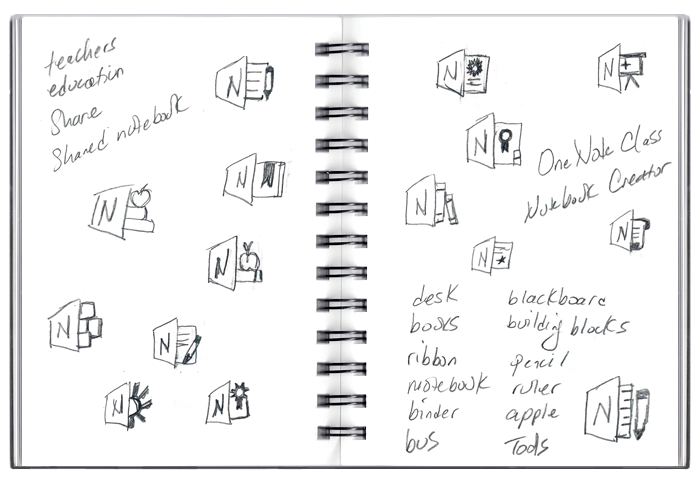 teachers
education
Share
Shared notebook
N
N
N
N
N
N
N
N
N
N
N
N
OneNote Class
Notebook Creator
N
N
N
desk
books
ribbon
notebook
binder
bus
blackboard
building blocks
pencil
ruler
apple
Tools
N